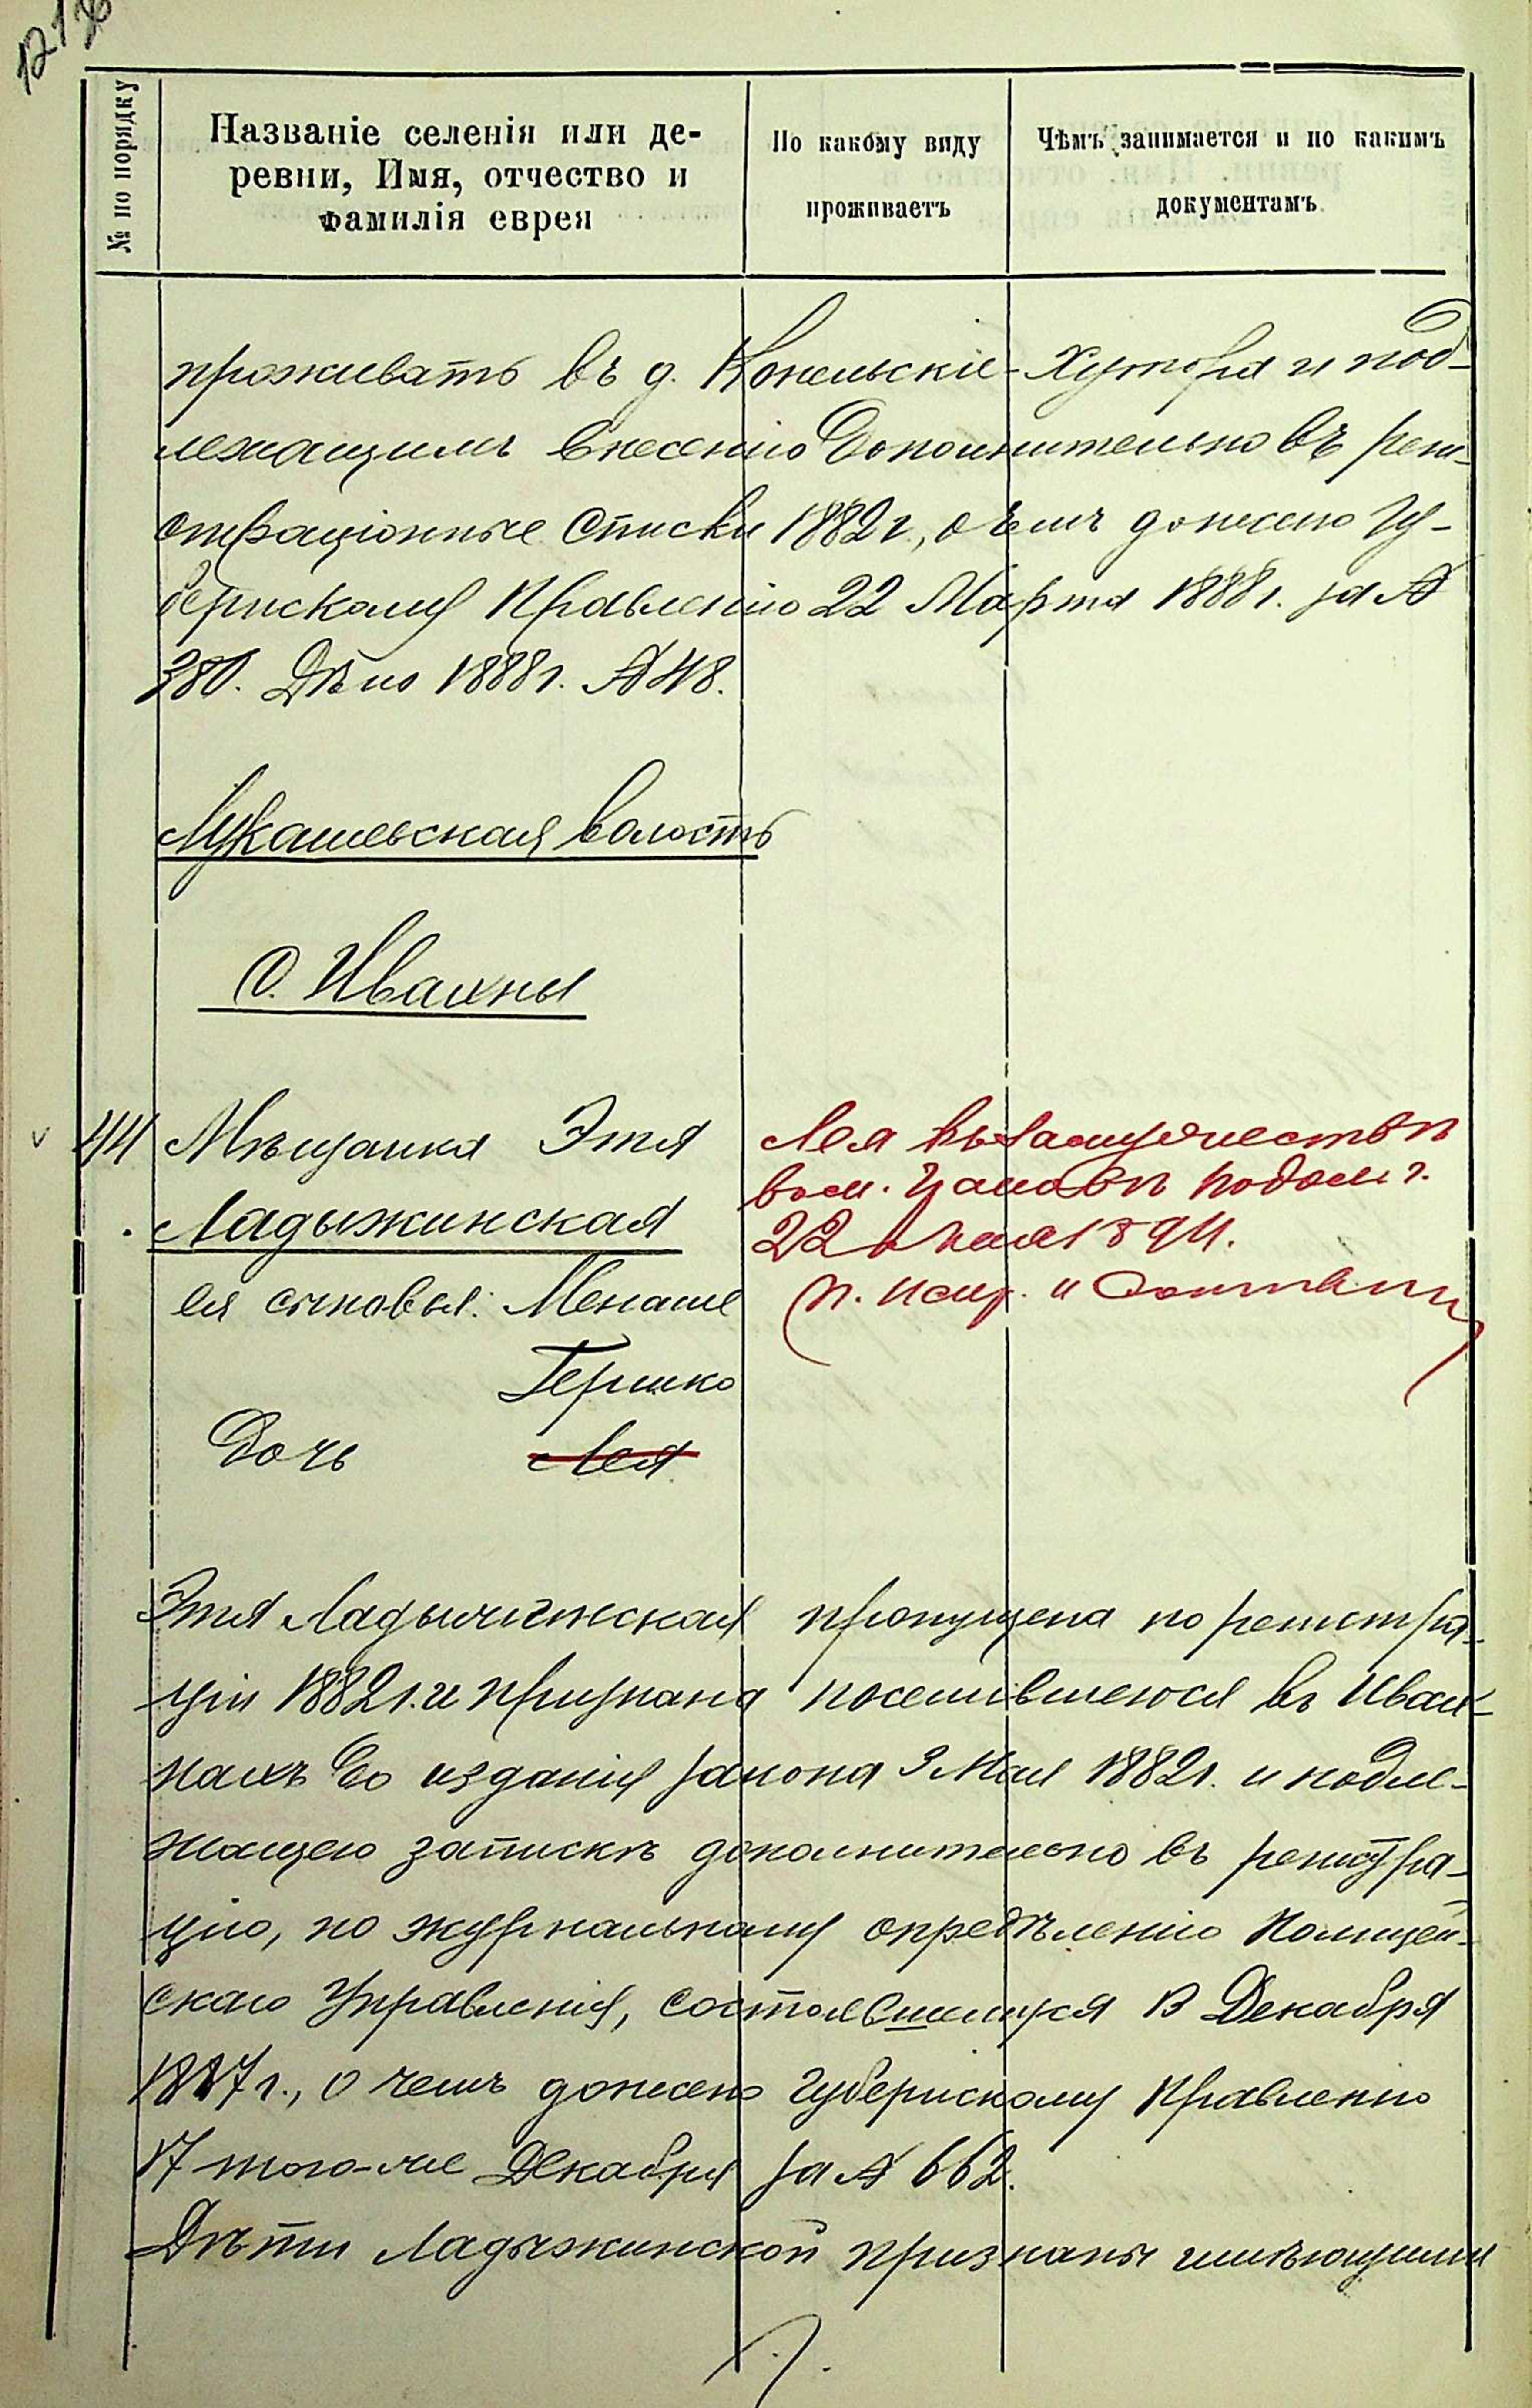 № по порядку
Названіе селенія или де-
ревни, Имя, отчество и
фамилія еврея
По какому виду
проживаетъ
Чѣмъ занимается и по какимъ
документамъ
проживать въ д. Конельскіе-Хутора и под-
лежащимъ внесенію дополнительно въ реги-
страціонные списки 1882 г., о чемъ донесено Гу-
бернскому Правленію 22 Марта 1888 г. за №
380. Дѣло 1888 г. № 48.
Лукашевская волость
С. Ивахны
44 Мѣщанка Этя
Ладыжинская
ея сыновья: Менаше
Гершко
Дочь Лея
Лея въ замужествѣ
22 1894.
Этя Ладыжинская пропущена по регистра-
ціи 1882 г. и признана поселившеюся въ Ивах-
нахъ до изданія закона 3 Мая 1882 г. и подле-
жащею запискѣ дополнительно въ регистра-
цію, по журнальному опредѣленію Полицей-
скаго Управленія, состоявшемуся 13 Декабря
1887 г., о чемъ донесено Губернскому Правленію
17 того-же Декабря за № 662.
Дѣти Ладыжинской признаны имѣющими